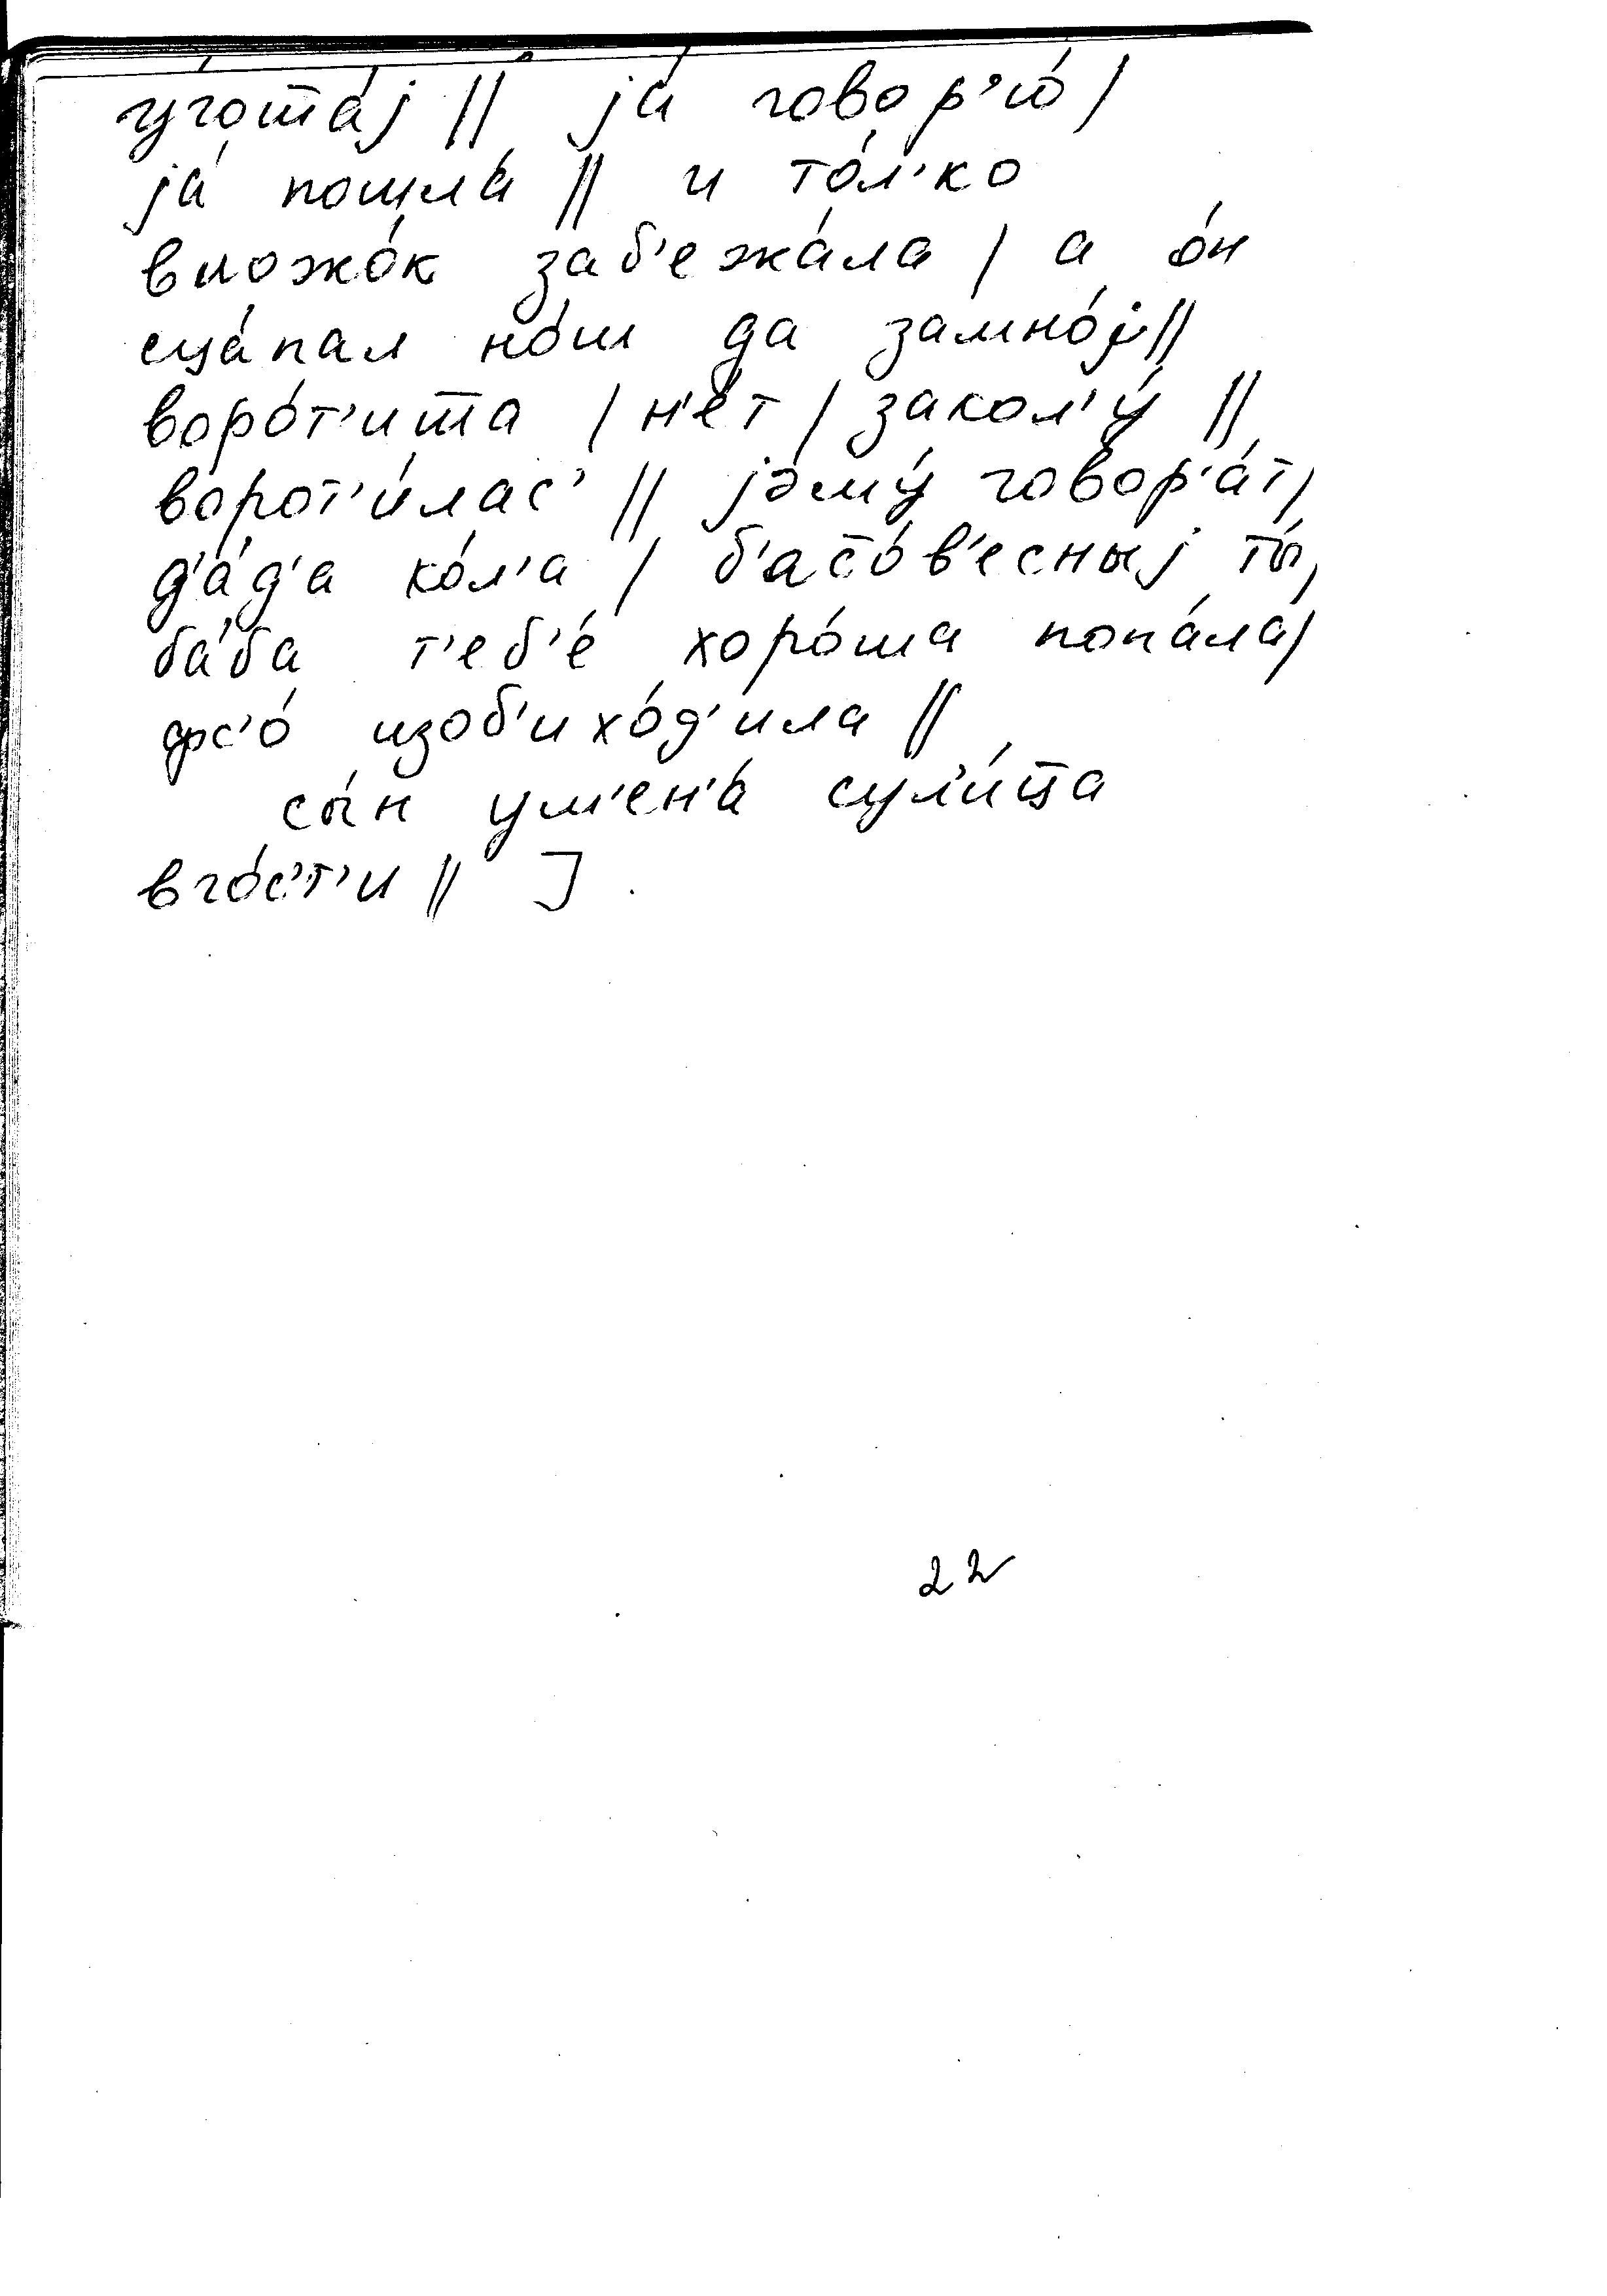 угоша́j || jа́ говор'у́ /
jа́ пошла́ || и то́л'ко
вложо́к заб'ежа́ла / а о́н
сца́пал но́ш да замно́j ||
воро́т'иша / н'е́т / закол'у́ ||
ворот'и́лас' || jэму́ говор'а́т /
д'а́д'а ко́л'а / б'асо́в'есныj ты́ /
ба́ба т'еб'е́ хоро́ша попа́ла /
фс'о́ изоб'ихо́д'ила ||
сы́н ум'ен'а́ сул'и́ца
вго́с'т'и || ]
22